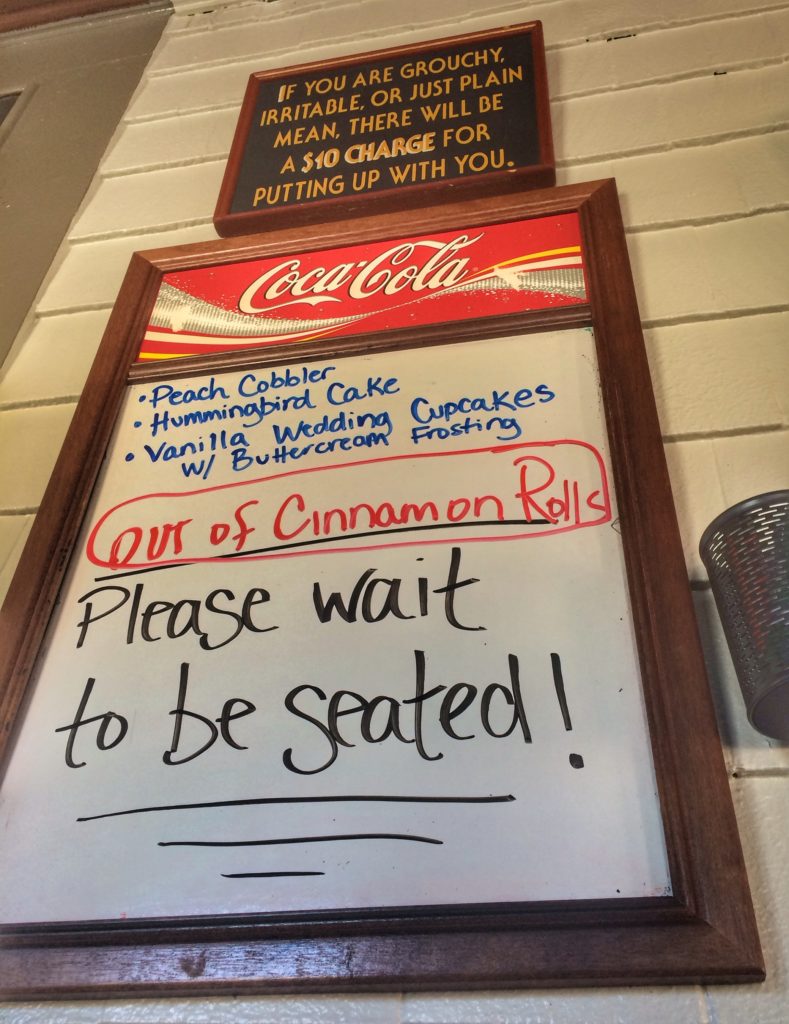 IF YOU ARE GROUCHY,
IRRITABLE, OR JUST PLAIN
MEAN, THERE WILL BE
A $10 CHARGE FOR
PUTTING UP WITH YOU.
Coca-Cola
• Peach Cobbler
• Hummingbird Cake
• Vanilla Wedding Cupcakes
w/ Buttercream Frosting
out of Cinnamon Rolls
Please wait
to be seated!